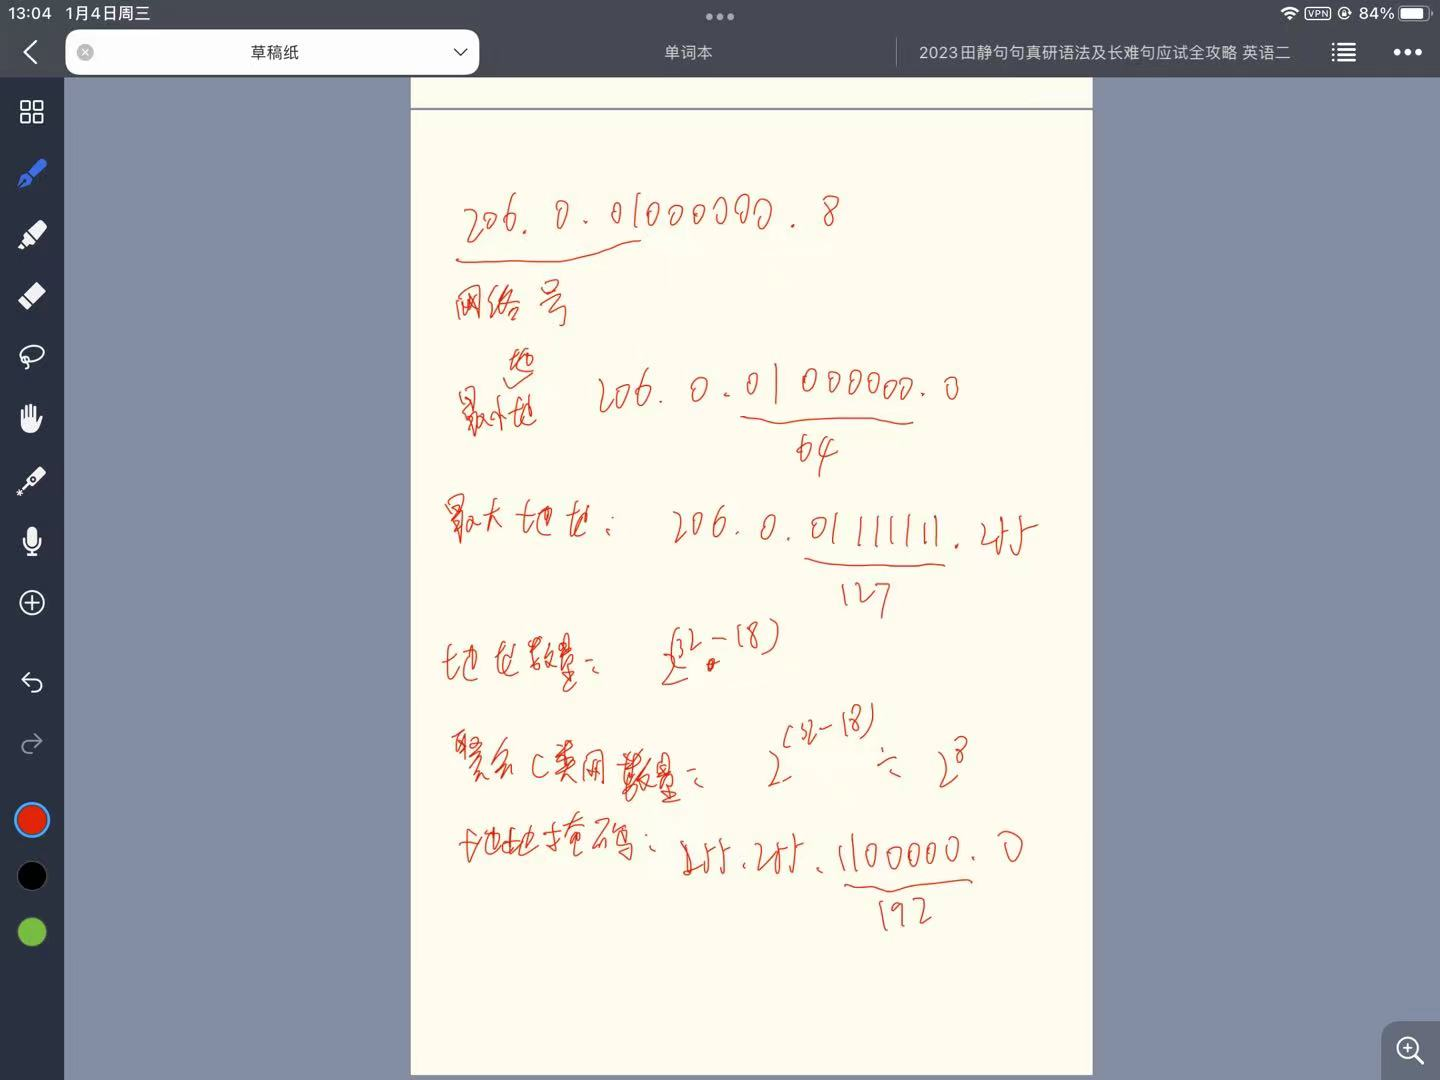 13:04 1月4日周三
VPN 84%
草稿纸 单词本 2023田静句句真研语法及长难句应试全攻略 英语二
206.0.01000000.8
网络号
地
最小地 206.0.01000000.0
64
最大地址: 206.0.01111111.255
127
地址数量= 2^(32-18)
聚合C类网数量= 2^(32-18) ÷ 2^8
地址掩码: 255.255.1100000.0
192